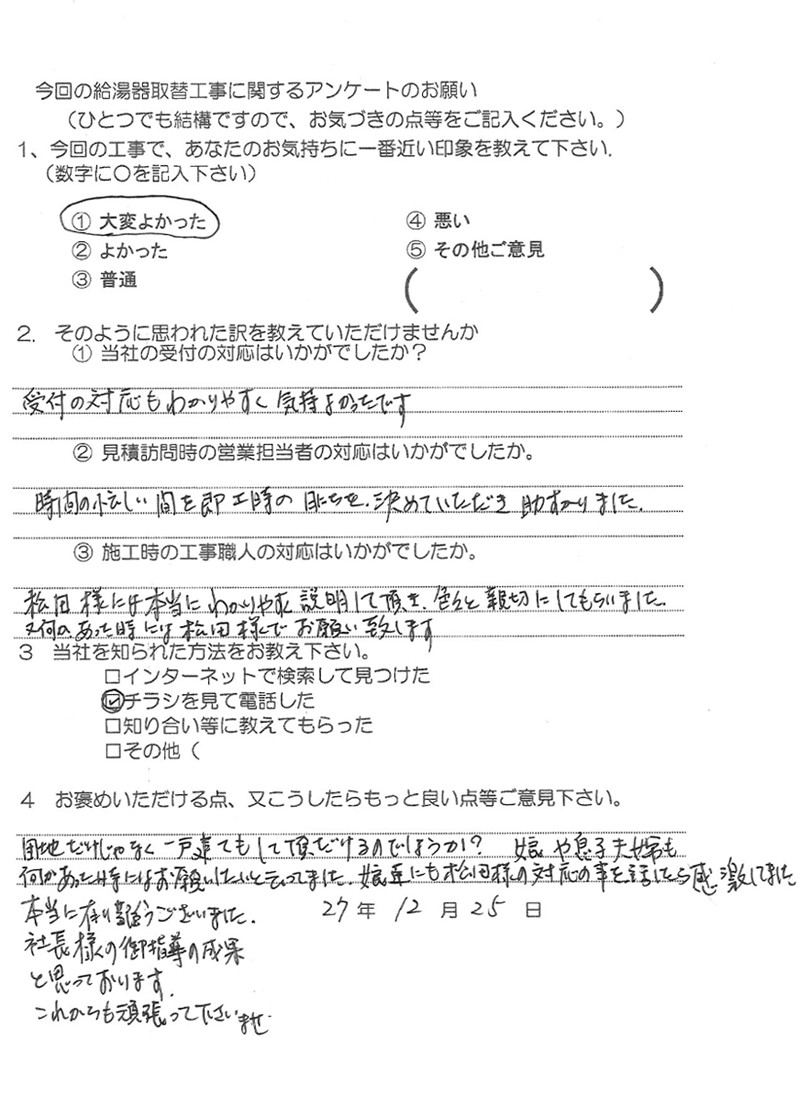 今回の給湯器取替工事に関するアンケートのお願い
（ひとつでも結構ですので、お気づきの点等をご記入ください。）
1、今回の工事で、あなたのお気持ちに一番近い印象を教えて下さい.
（数字に〇を記入下さい）
① 大変よかった ④ 悪い
② よかった ⑤ その他ご意見
③ 普通 （ ）
2. そのように思われた訳を教えていただけませんか
① 当社の受付の対応はいかがでしたか？
受付の対応もわかりやすく気持よかったです
② 見積訪問時の営業担当者の対応はいかがでしたか。
時間の忙しい間を即工時の日にちを、決めていただき助すかりました.
③ 施工時の工事職人の対応はいかがでしたか。
松田様には本当にわかりやす 説明して頂き、色々と親切にしてもらいました.
又何のあった時には松田様でお願い致します
3 当社を知られた方法をお教え下さい。
□インターネットで検索して見つけた
☑チラシを見て電話した
□知り合い等に教えてもらった
□その他（
4 お褒めいただける点、又こうしたらもっと良い点等ご意見下さい。
団地だけじゃなく一戸建てもして頂だけるのでしょうか？ 娘や息子夫婦も
何かあった時にはお願いしたいと云ってました. 娘達にも松田様の対応の事を話したら感激してました
本当に有り難うございました. 27年12月25日
社長様の御指導の成果
と思っております.
これからも頑張って下さいませ